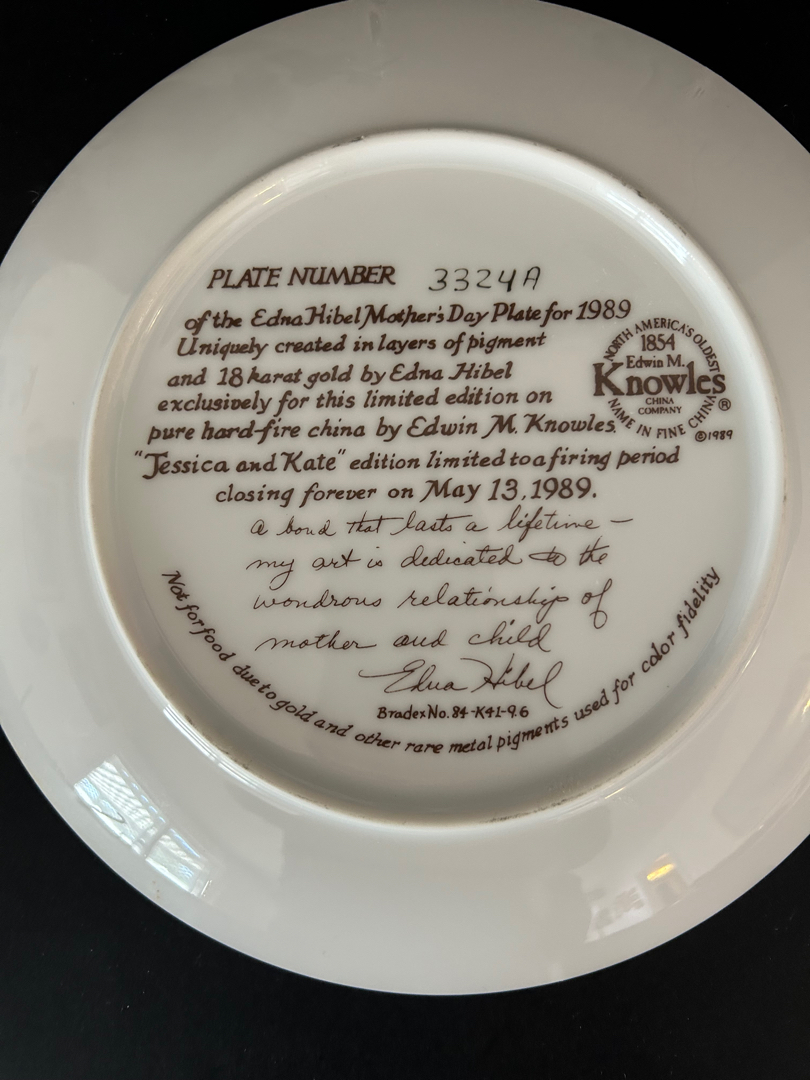 PLATE NUMBER 3324A
of the Edna Hibel Mother's Day Plate for 1989
Uniquely created in layers of pigment
and 18 karat gold by Edna Hibel
exclusively for this limited edition on
pure hard-fire china by Edwin M. Knowles.
"Jessica and Kate" edition limited to a firing period
closing forever on May 13, 1989.
NORTH AMERICA'S OLDEST
1854
Edwin M.
Knowles
CHINA
COMPANY
NAME IN FINE CHINA
®
©1989
a bond that lasts a lifetime —
my art is dedicated to the
wondrous relationship of
mother and child
Edna Hibel
Bradex No. 84-K41-9.6
Not for food due to gold and other rare metal pigments used for color fidelity